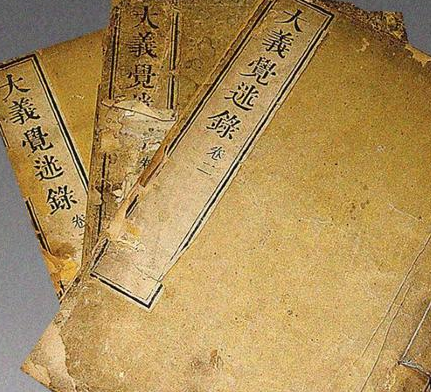 大義覺迷錄 卷
大義覺迷 卷
大義覺迷錄 卷二